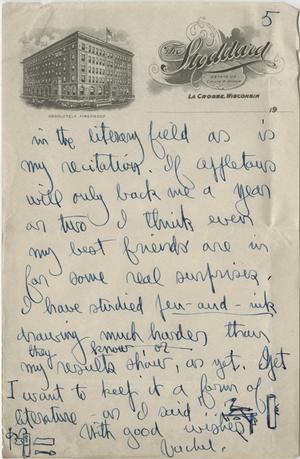 5
The Stoddard
La Crosse, Wisconsin
ABSOLUTELY FIREPROOF
19
in the literary field as is
my recitation. If appletons
will only back me a year
or two I think even
my best friends are in
for some real surprises.
I have studied pen-and-ink
drawing much harder than
they know, or
my results show, as yet. Yet
I want to keep it a form of
literature - as I said
With good wishes
Vachel.